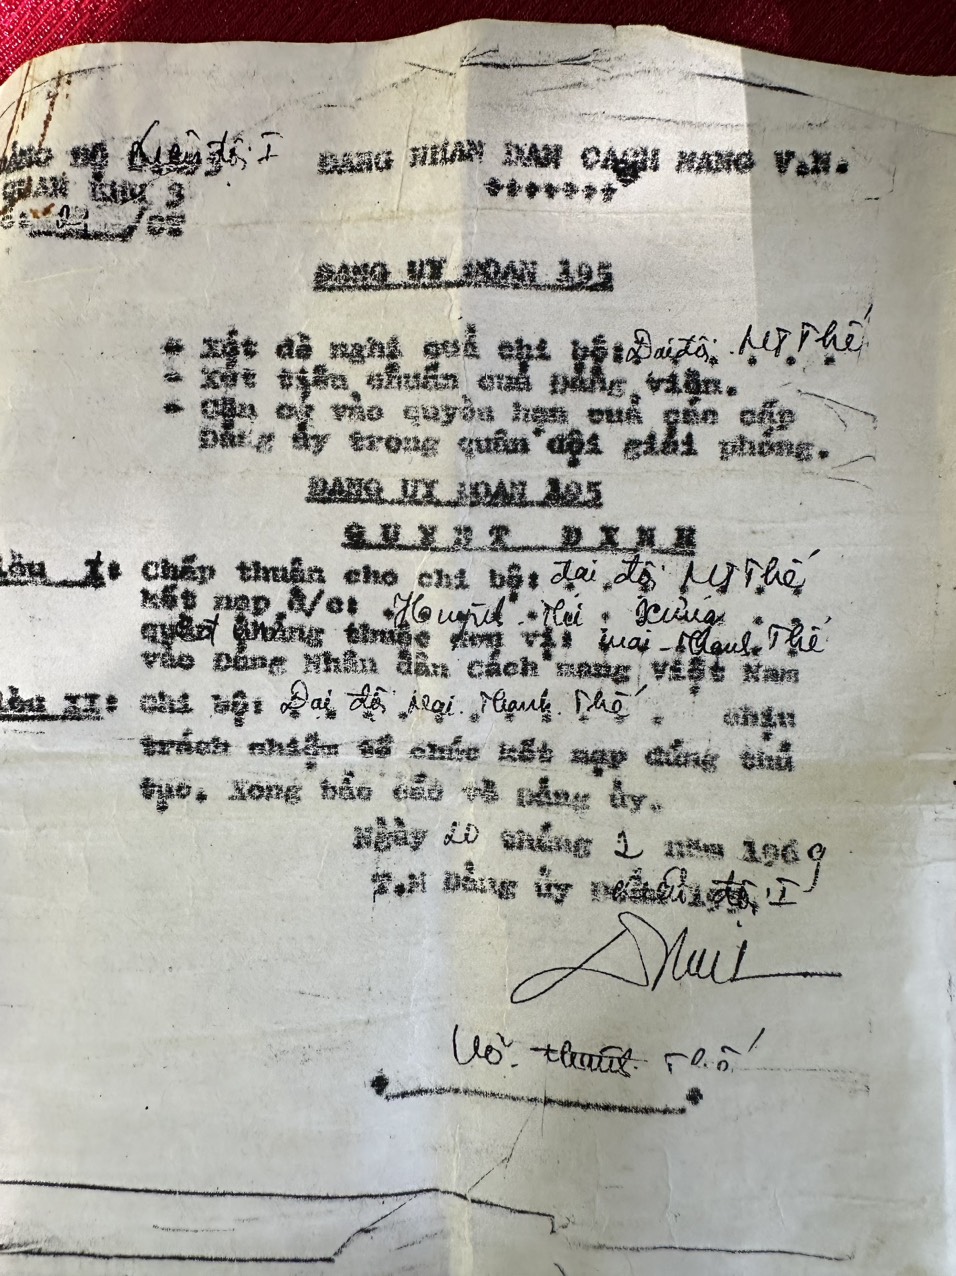 ĐẢNG BỘ Liên đội I
ĐANG NHAN DAN CACH MANG V.N.
QUAN KHU 3
/QĐ
ĐANG UY ĐOAN 195
- Xét đề nghị quả chi bộ: Đại đội MT Thế
- Xét tiêu chuẩn cuả Đảng viên.
- Căn cứ vào quyền hạn cuả các cấp
Đảng ủy trong quân đội giải phóng.
ĐANG UY ĐOAN 195
QUYET ĐINH
Điều I: Chấp thuận cho chi bộ: đại đội MT Thế
kết nạp Đ/c: Huỳnh Thị
thuộc đơn vị: Mai Thanh Thế
vào Đảng Nhân dân Cách mạng Việt Nam
Điều II: Chi bộ: Đại đội Mai Thanh Thế chịu
trách nhiệm tổ chức kết nạp đúng thủ
tục. Xong báo cáo về Đảng ủy.
Ngày 20 tháng 2 năm 1969
T.M Đảng ủy đội I
Võ